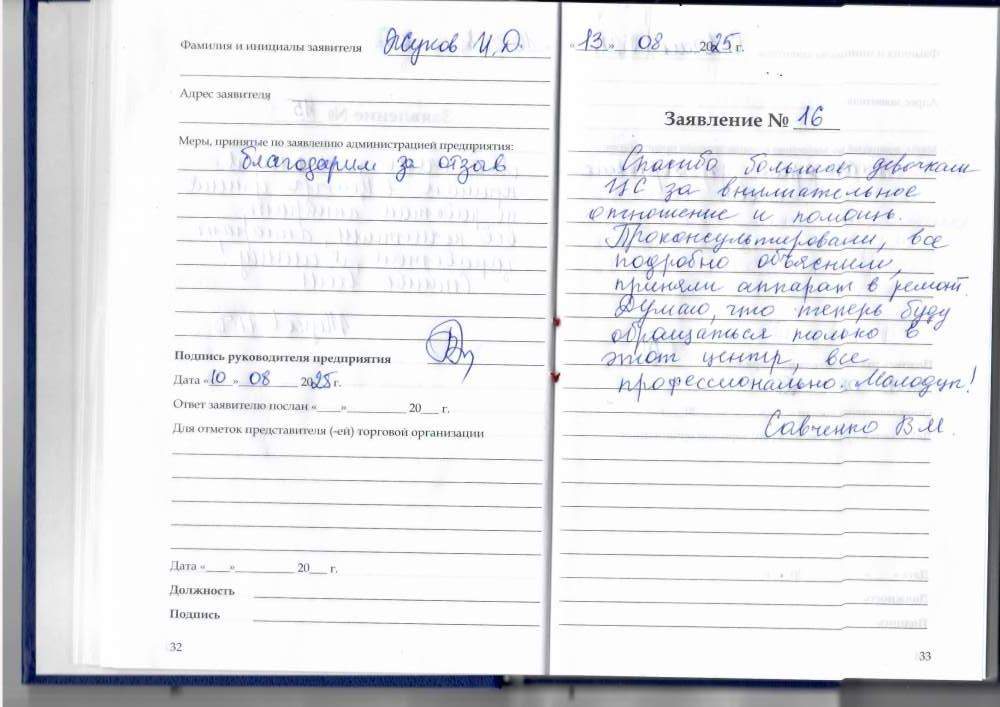 Фамилия и инициалы заявителя Жуков И.О.
Адрес заявителя
Меры, принятые по заявлению администрацией предприятия:
благодарим за отзыв
Подпись руководителя предприятия
Дата «10» 08 2025 г.
Ответ заявителю послан «____»__________ 20___ г.
Для отметок представителя (-ей) торговой организации
Дата «____»__________ 20___ г.
Должность
Подпись
32
«13» 08 2025 г.
Заявление № 16
Спасибо большое девочкам
ЦС за внимательное
отношение и помощь.
Проконсультировали, все
подробно объяснили,
приняли аппарат в ремонт.
Думаю, что теперь буду
обращаться только в
этот центр, все
профессионально. Молодцы!
Савченко В М.
33